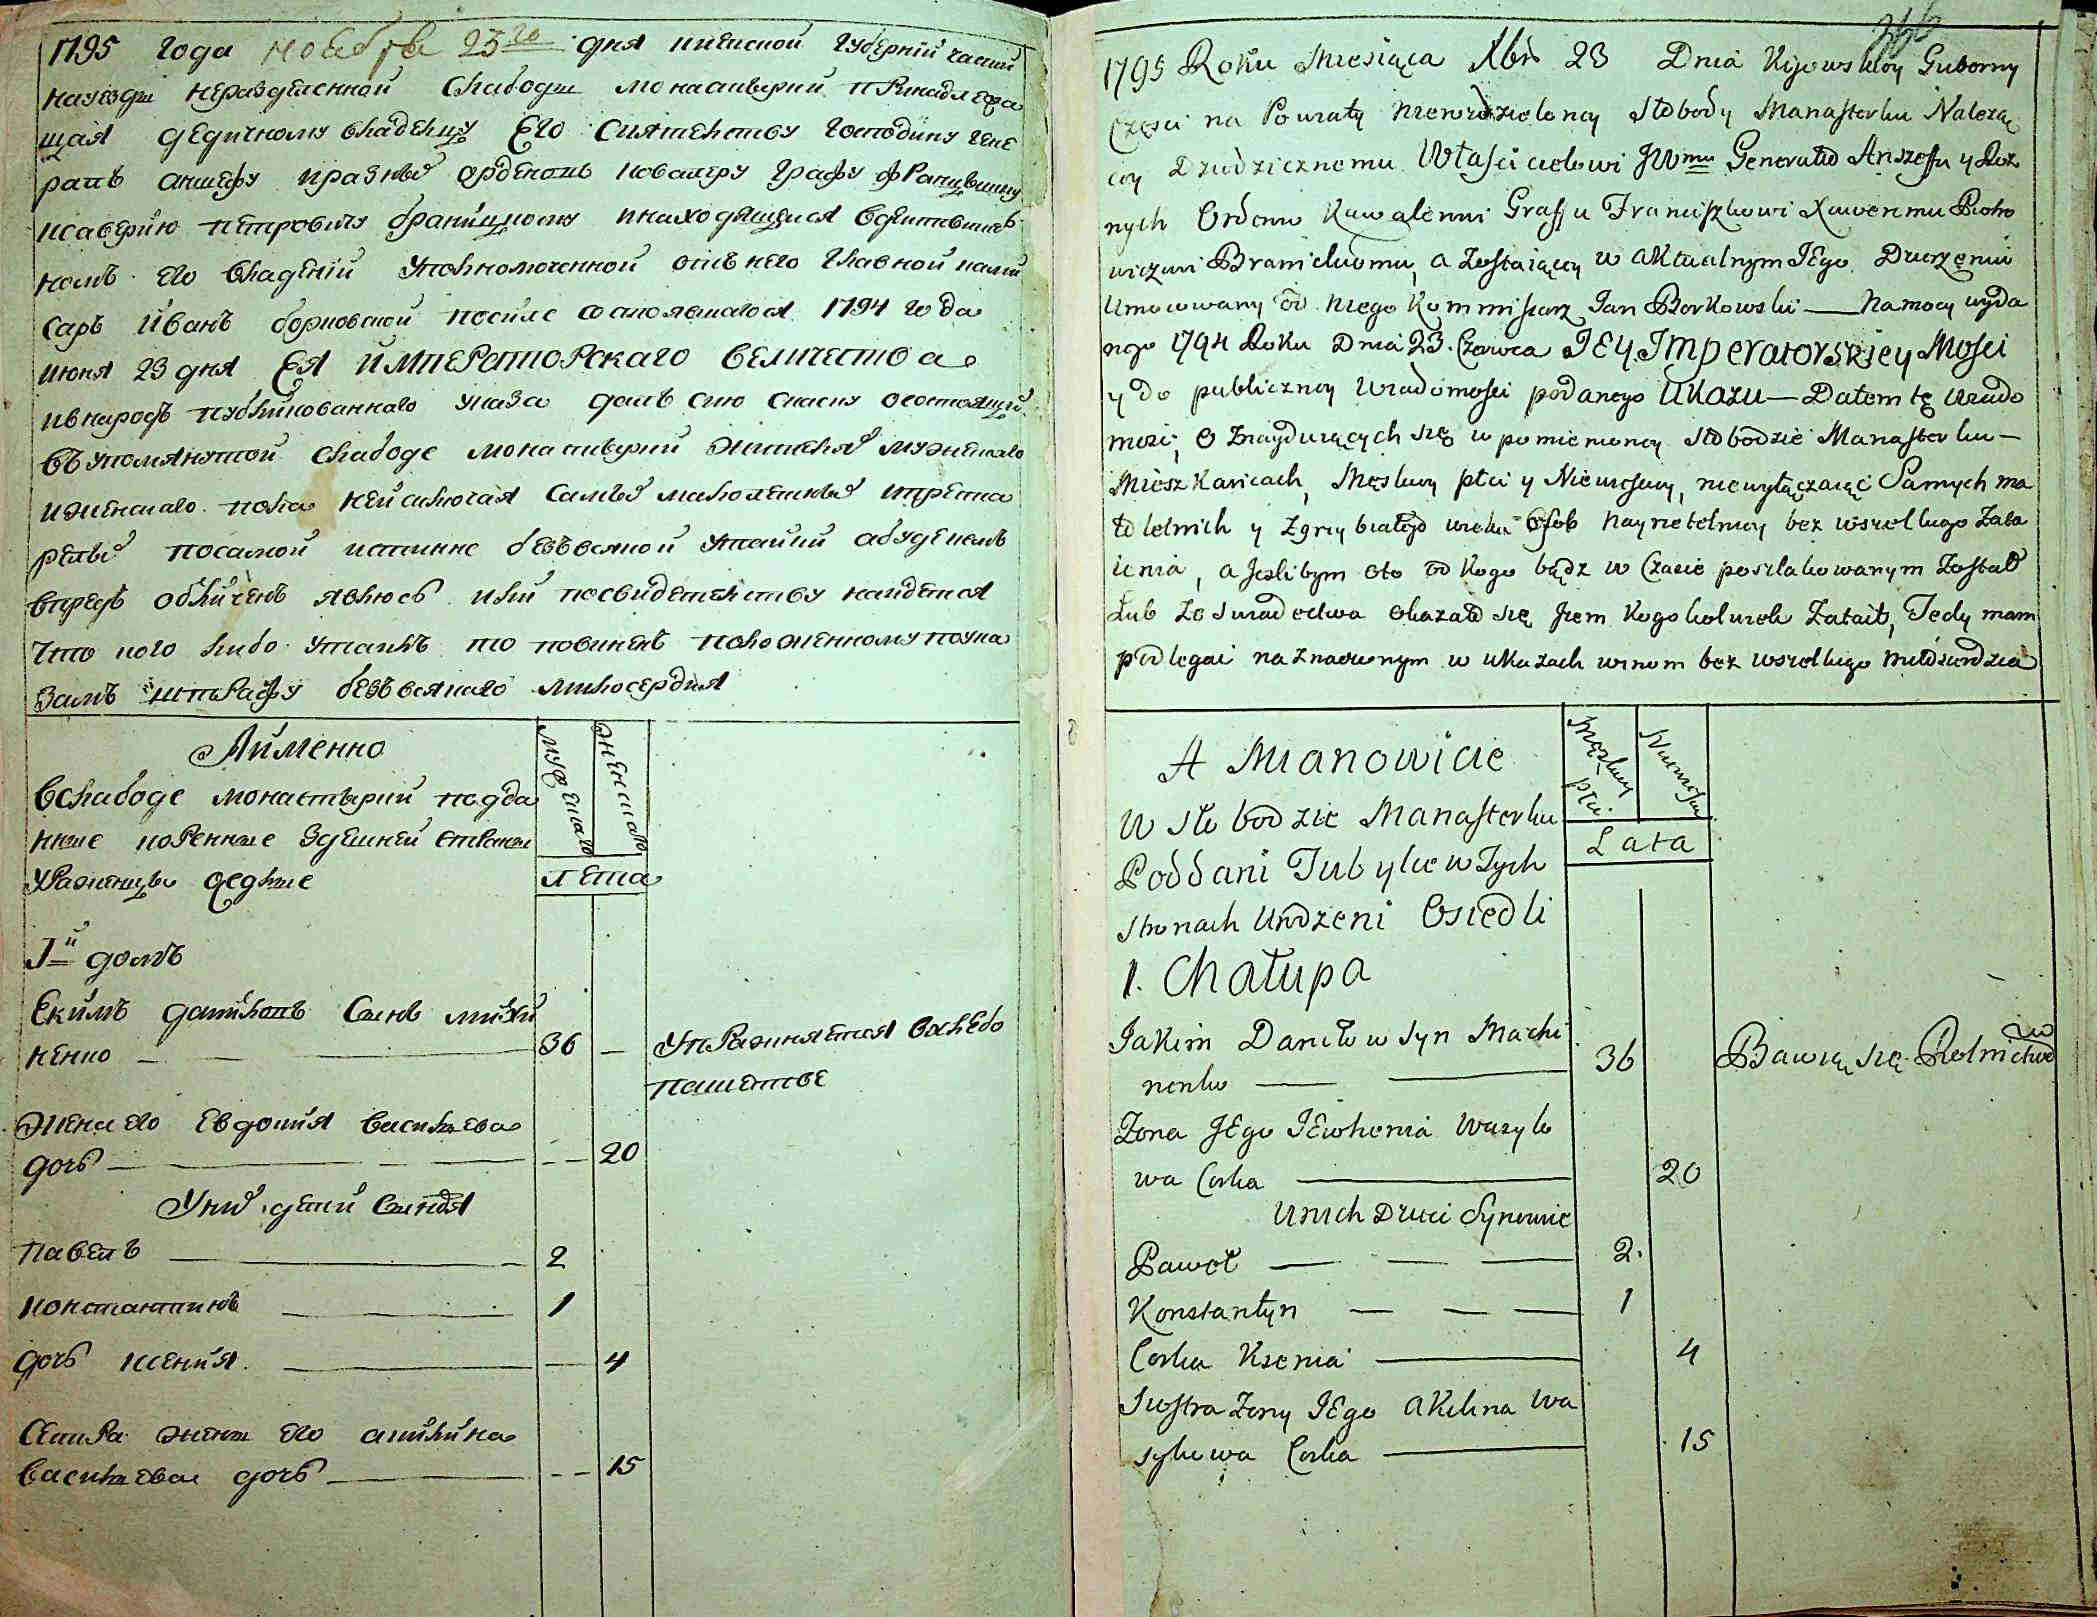 1795 года ноября 23го дня киевской губернїи части
науезды неразделенной слабоды монастырки принадлежа
щая дедичному владелцу Его сиятелству господину гене
ралъ аншефу иразныхъ орденовъ ковалеру графу францышку
ксаверїю петровичу браницкому инаходящеися вдеиствител
номъ его владенїи уполномоченной отъ него главной коми
саръ Иванъ борковской посиле состоявшагося 1794 года
июня 23 дня Ея Императорскаго величества
ивнародъ публикованнаго указа далъ сию скаску осостоящих
въупомянутой слабоде монастырки жителях мужеска
иженскаго пола неисключая самых малолетных ипреста
релых посамой истинне безвсякой утайки абудеежелъ
впредь обличенъ явлюсь или посвидетелству найдется
что кого либо утаилъ то повиненъ положенному поука
замъ штрафу безвсякаго милосердия
Аименно
вслабоде монастырки подда
нные коренные здешней стране
урожентцы оседлые
мужескаго
женскаго
лета
1й домъ
Екимъ даниловъ сынъ михи
ненко 36
упражняется вхлебо
пашестве
жена его евдокия василева
дочь 20
уних детей сыновя
павелъ 2
константинъ 1
дочь ксения 4
сестра жены его акилина
василева дочь 15
1795 Roku Miesiąca Xbra 23 Dnia Kijowskiey Guberny
Częsci na Powiaty nierozdzieloney Słobody Manasterku Należą
cy Dziedzicznemu Właścicielowi JWmu Generałd Anszeffu y Roz
nych Orderow Kawalerowi Graffu Franciszkowi Xaweremu Piotro
wiczowi Branickiemu, a Zostaiący w aktualnym JEgo Dzierzęniu
Umocowany od niego Kommisarz Jan Borkowski — Na mocy wyda
nego 1794 Roku Dnia 23. Czerwca JEy Imperatorskiey Mosci
y do publiczney wiadomosci podanego Ukazu — Dałem tę wiado
mość, o Znayduiących się w pomienioney słobodzie Manasterku —
Mieszkańcach, Męskiey płci y Niewiesciey, niewyłączaiąc Samych ma
łoletnich y Zgrzybiałego wieku Osob nayrzetelniey bez wszelkiego Zata
ienia, a jeslibym oto od kogo bądz w Czasie poszlakowanym Został
Lub Ze swiadectwa okazało się żem kogokolwiek Zataił, Tedy mam
podlegać naznaczonym w ukazach winom bez wszelkiego miłosierdzia
A Mianowicie
W słobodzie Manasterku
Poddani Tubylce w Tych
stronach Urodzeni Osiedli
Męskiey płci
Niewiesciey
Lata
1. Chałupa
Jakim Daniłow syn Machi
nenko 36
Bawią się Rolnictwem
Zona JEgo JEwhenia Wasylo
wa Corka 20
U nich Dzieci Synowie
Paweł 2.
Konstantyn 1
Corka Ksenia 4
Siostra Zony JEgo Akilina Wa
sylowa Corka 15